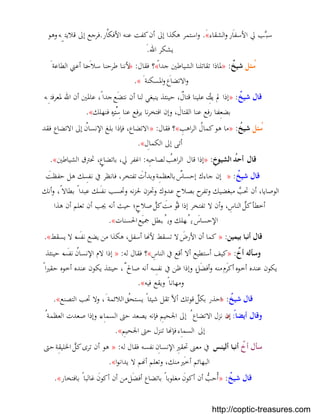 سبَّب لي الأسفار والشقاء». واستمر هكذا إلى أن كفت عنه الأفكار. فرجع إلى قلايته وهو
يشكر الله.
سُئل شيخٌ: «لماذا تقاتلنا الشياطين جداً»؟ فقال: «لأننا طرحنا سلاحنا أعني الطاعةَ
والاتضاعَ والمسكنةَ ».
قال شيخٌ: «إذا لم يكُ علينا قتال، حينئذ ينبغي لنا أن نتضع جداً، عالمين أن الله لمعرفته
بضعفنا رفع عنا القتال، وإن افتخرنا يرفع عنا سِتْره فنهلك».
سُئل شيخٌ: « ما هو كمال الراهب»؟ فقال: « الاتضاع، فإذا بلغ الإنسان إلى الاتضاع فقد
أتى إلى الكمال».
قال أحدُ الشيوخ: «إذا قال الراهب لصاحبه: اغفر لي، باتضاع، تحترق الشياطين».
قال شيخٌ: « إن جاءك إحساسٌ بالعظمة وبدأتَ تفتخر، فانظر في نفسك هل حفظتَ
الوصايا، أن تحبَّ مبغضيك وتفرح بصلاح عدوك وتحزن لحزنه وتحسب نفسَك عبداً بطالاً، وأنك
أخطأُ كل الناس، وأن لا تفتخر إذا قوَّمت كلَّ صلاحٍ؛ حيث أنه يجب أن تعلم أن هذا
الإحساسَ يُهلك ويُبطل جميعَ الحسنات».
قال أنبا بيمين: « كما أن الأرضَ لا تسقط لأنها أسفل، هكذا من يضع نفسه لا يسقط».
وسأله أخٌ: «كيف أستطيع ألا أقع في الناسِ»؟ فقال له: « إذا لام الإنسانُ نفسَه حينئذ
يكون عنده أخوه أكرم منه وأفضل، وإذا ظن في نفسه أنه صالحٌ، حينئذ يكون عنده أخوه حقيراً
ومهاناً ويقع فيه».
قال شيخٌ: «احذر بكلِّ قوتك ألا تقل شيئاً يستحق اللائمةَ، ولا تحب التصنع».
وقال أيضاً: « نزل الاتضاعُ إلى الجحيم فإنه يصعد حتى السماء، وإذا صعدت العظمةُ
إلى السماء فإنها تنزل حتى الجحيم».
سأل أخٌ أنبا ألينس في معنى تحقير الإنسان نفسه فقال له: « هو أن ترى كلَّ الخليقة حتى
البهائم أخير منك، وتعلم أنهم لا يدانوا».
قال شيخٌ: «أُحبُّ أن أكون مغلوباً باتضاع أفضل من أن أكون غالباً بافتخار».
http://coptic-treasures.com